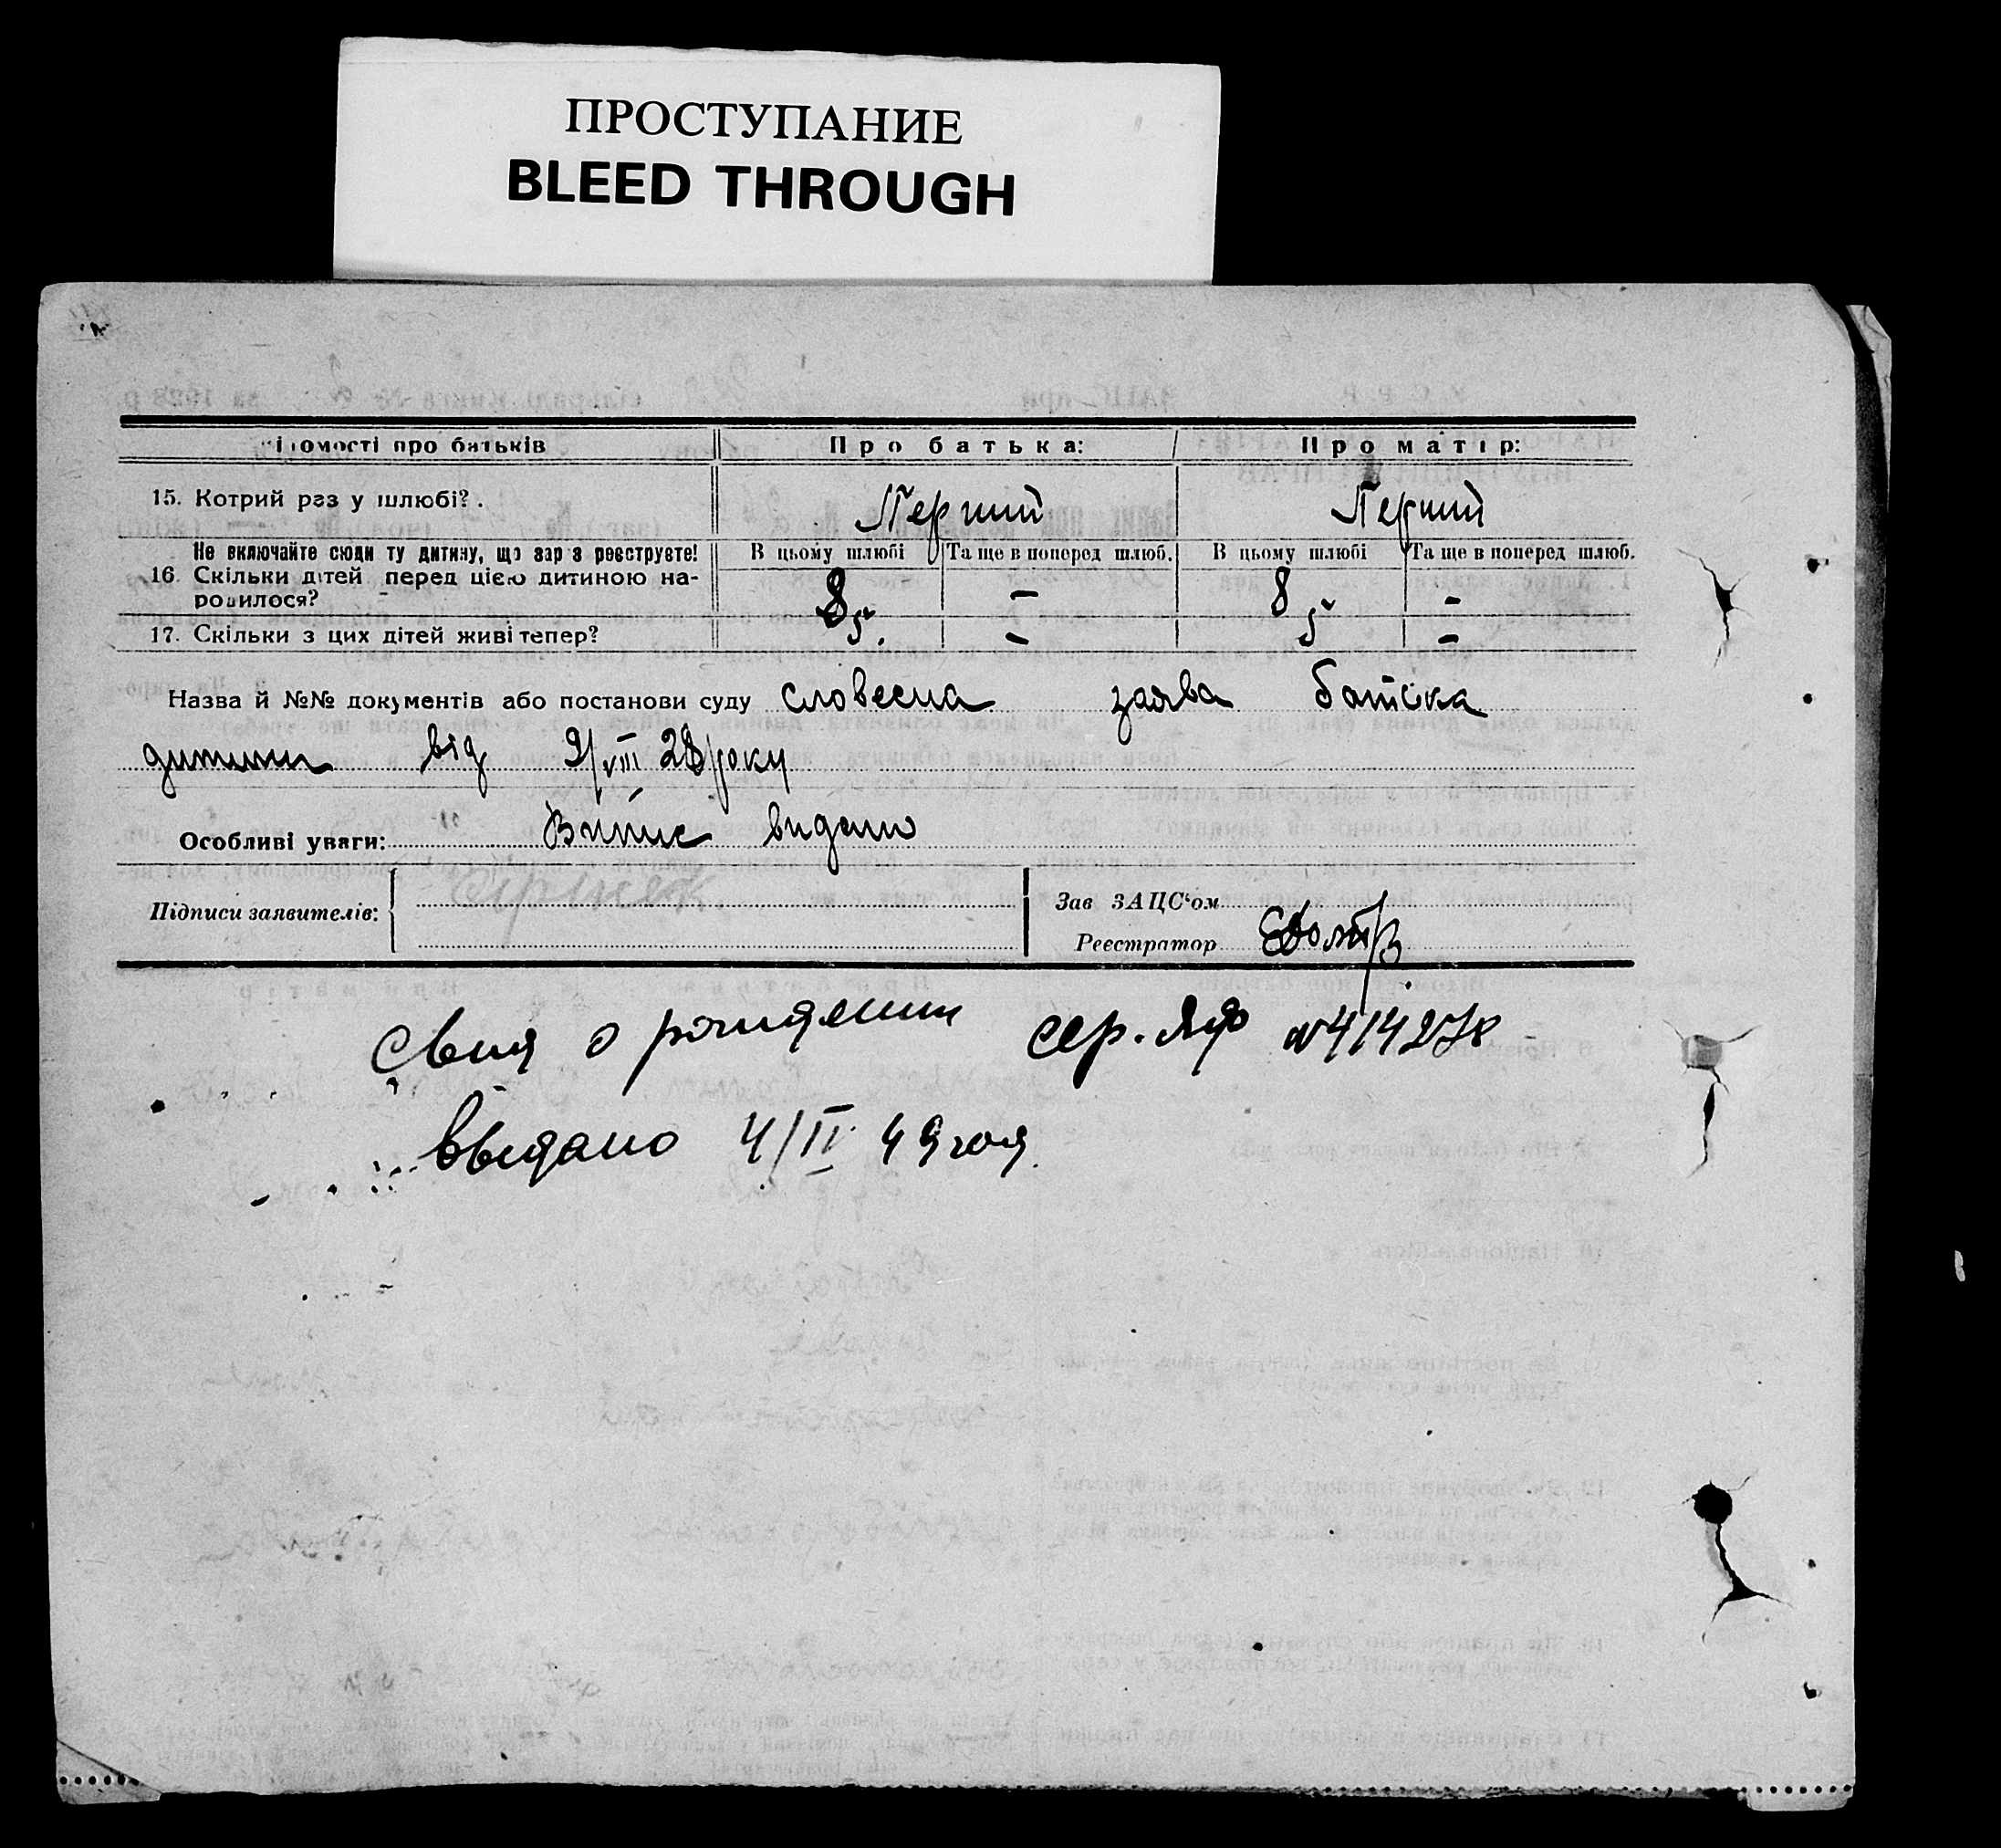 ПРОСТУПАНИЕ
BLEED THROUGH
ідомості про батьків Про батька: Про матір:
15. Котрий раз у шлюбі? Перший Перший
Не включайте сюди ту дитину, що зараз реєструєте! В цьому шлюбі Та ще в поперед шлюб. В цьому шлюбі Та ще в поперед шлюб.
16. Скільки дітей перед цією дитиною на-
родилося? 8 – 8 –
17. Скільки з цих дітей живі тепер? 5 – 5 –
Назва й №№ документів або постанови суду словесна заява батька
дитини від 9/VIII 28 року
Особливі уваги: Випис видано
Підписи заявителів: Зав ЗАЦС'ом
Реєстратор
Свид о рождении сер. ЯФ №
Выдано 4/II 49 год